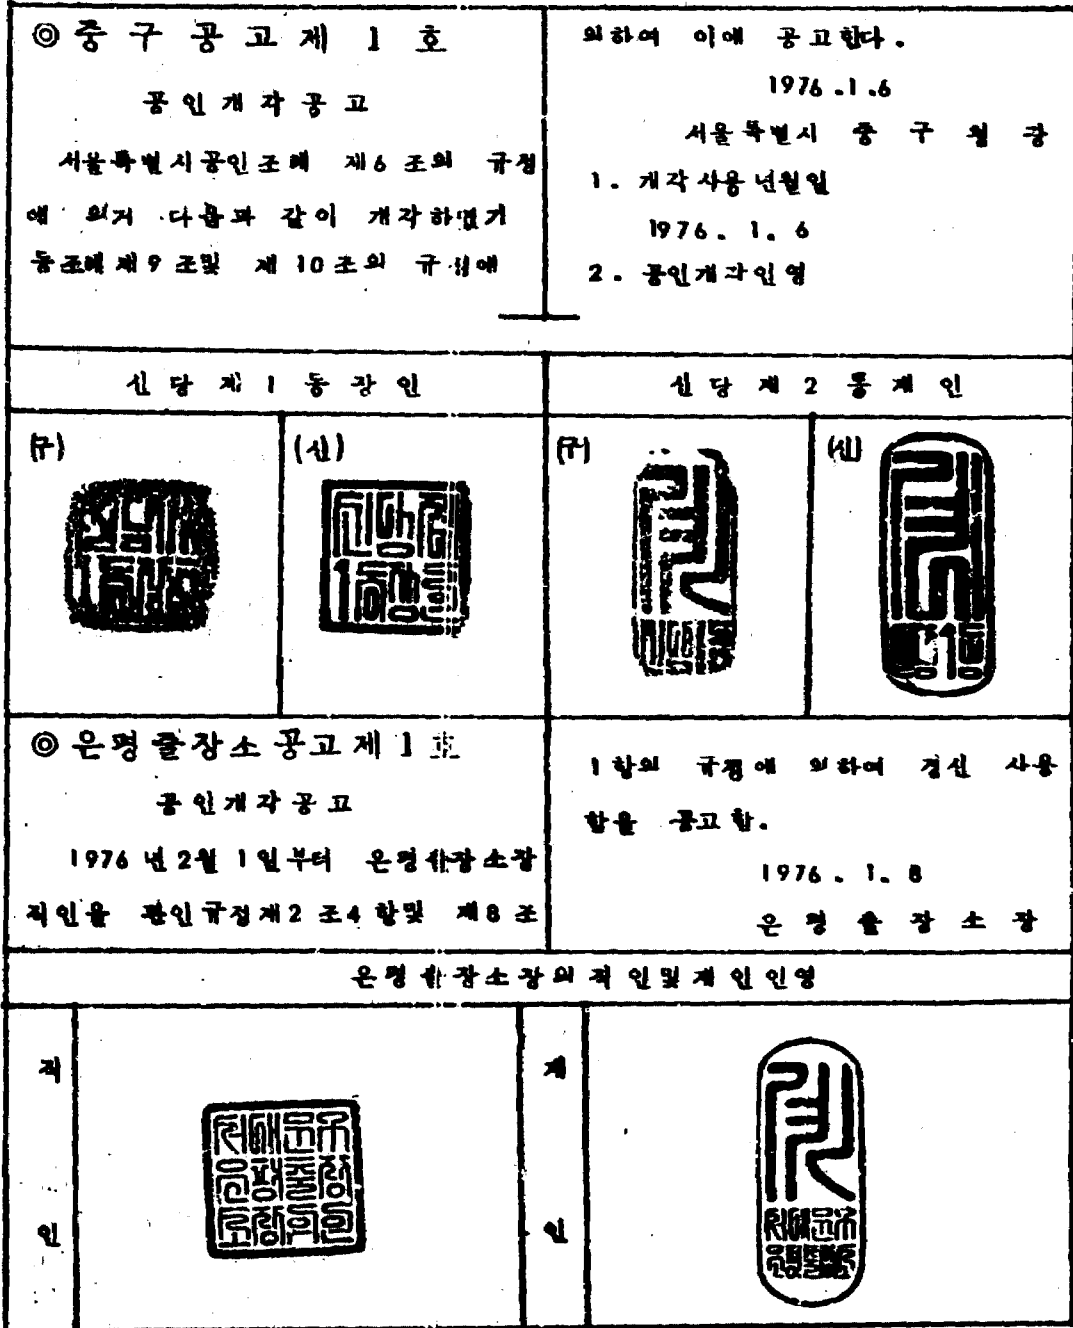 ◎ 중구공고제 1 호
공인개각공고
서울특별시공인조례 제6조의 규정
에 의거 다음과 같이 개각하였기
동조례제9조및 제10조의 규정에
의하여 이에 공고한다.
1976.1.6
서울특별시 중구청장
1. 개각사용년월일
1976. 1. 6
2. 공인개각인영
신당제1동장인
신당제2동계인
(구)
(신)
(구)
(신)
◎ 은평출장소공고제 1 호
공인개각공고
1976년 2월 1일부터 은평출장소장
직인을 관인규정제2조4항및 제8조
1항의 규정에 의하여 갱신 사용
함을 공고함.
1976. 1. 8
은평출장소장
은평출장소장의직인및계인인영
직인
계인